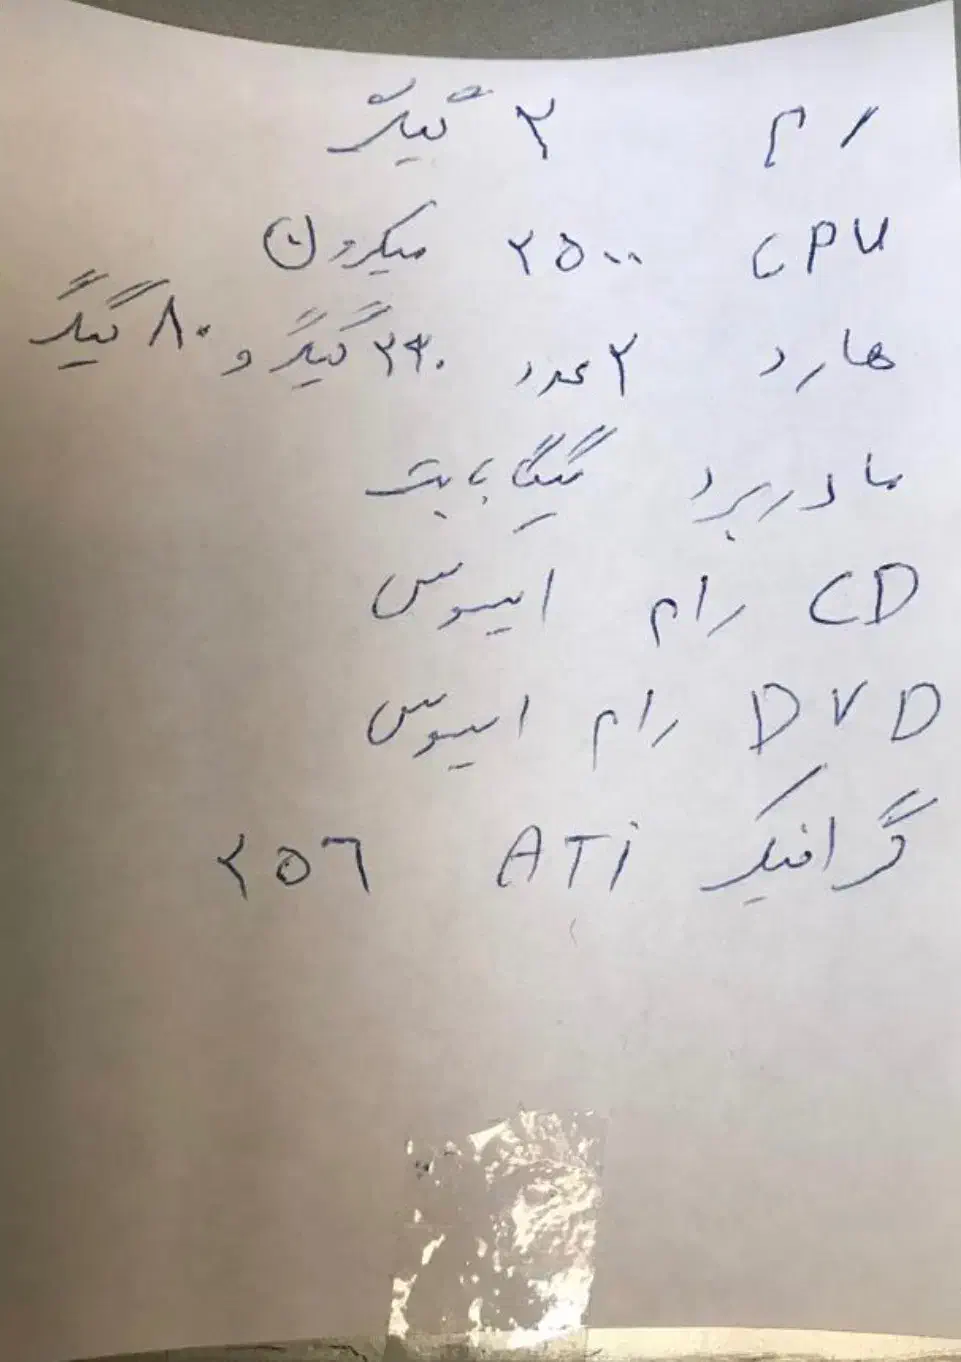 رم ۲ گیگ
CPU ۲۵۰۰ میکرون
هارد ۲ عدد گیگ و ۸۰ گیگ
مادربرد گیگابایت
CD رام ایسوس
DVD رام ایسوس
گرافیک ATi ۲۵۶